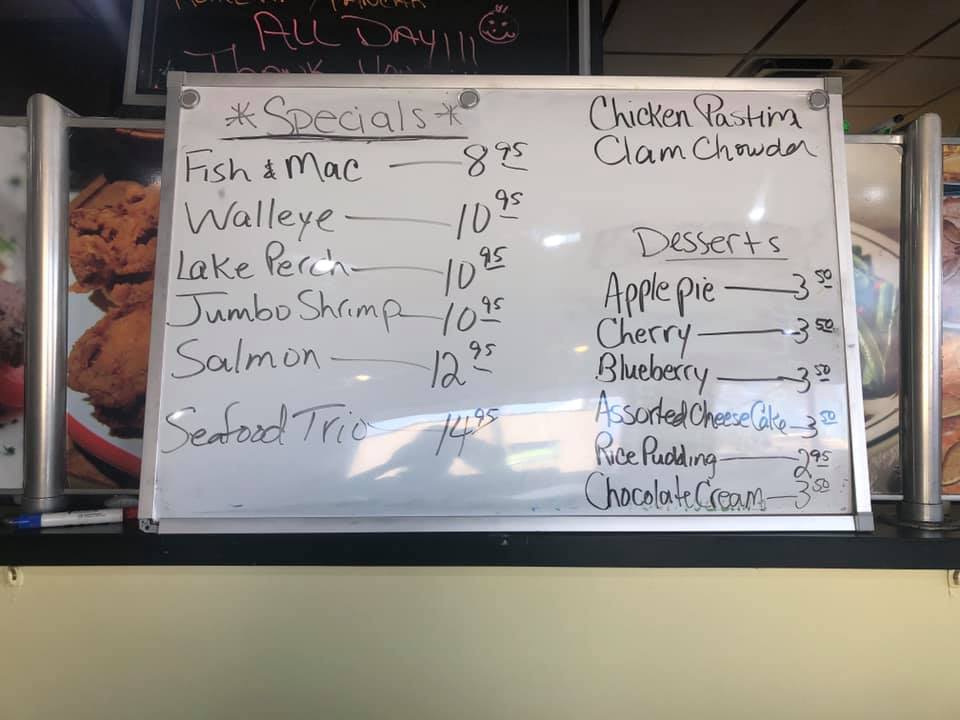 ALL DAY!!!
Thank You!!!
*Specials*
Fish & Mac — 8 95
Walleye — 10 95
Lake Perch — 10 95
Jumbo Shrimp — 10 95
Salmon — 12 95
Seafood Trio 14 95
Chicken Pastina
Clam Chowder
Desserts
Apple pie — 3 50
Cherry — 3 50
Blueberry — 3 50
Assorted Cheese Cake — 3 50
Rice Pudding — 2 95
Chocolate Cream — 3 50